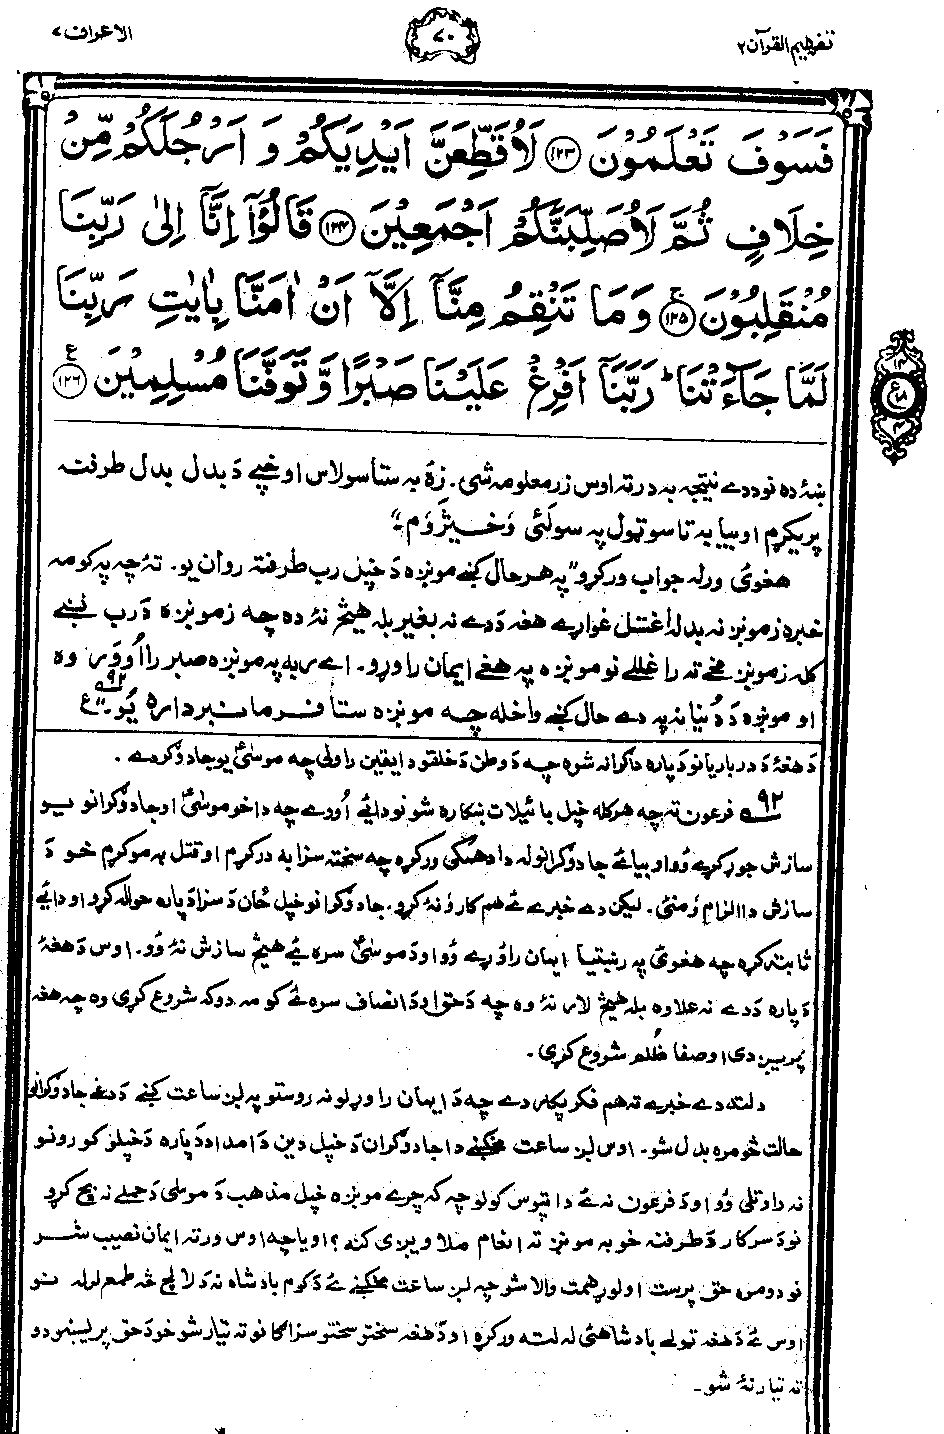 تفهيم القرآن ۲
۷۰
الاعراف ۷
فَسَوْفَ تَعْلَمُوْنَ ﴿۱۲۳﴾ لَاُقَطِّعَنَّ اَيْدِيَكُمْ وَ اَرْجُلَكُمْ مِّنْ
خِلَافٍ ثُمَّ لَاُصَلِّبَنَّكُمْ اَجْمَعِيْنَ ﴿۱۲۴﴾ قَالُوْٓا اِنَّآ اِلٰى رَبِّنَا
مُنْقَلِبُوْنَ ﴿۱۲۵﴾ۚ وَمَا تَنْقِمُ مِنَّآ اِلَّآ اَنْ اٰمَنَّا بِاٰيٰتِ رَبِّنَا
لَمَّا جَآءَتْنَا ؕ رَبَّنَآ اَفْرِغْ عَلَيْنَا صَبْرًا وَّ تَوَفَّنَا مُسْلِمِيْنَ ﴿۱۲۶﴾ ع
ښۀ ده نو ددے نتيجه به درته اوس زر معلومه شي. زۀ به ستاسو لاس او خپے دَ بدل بدل طرفته
پريکړم او بيا به تاسو ټول په سولئ وَخېژَوَم"
هغوئ ورله جواب ورکړو "په هر حال کښے مونږه دَ خپل رب طرفته روان يو. تۀ چه په کومه
خبره زمونږ نه بدله اغستل غواړے هغه دَدے نه بغير بله هيڅ نۀ ده چه زمونږه دَرب نښے
کله زمونږ مخے ته راغللے نو مونږه په هغے ايمان راوړو. اے ربه په مونږه صبر را اووَروه
او مونږه دَ دُنيا نه په دے حال کښے واخله چه مونږه ستا فرمانبرداره يُو." ۹۲ ع
دَ هغۀ دَ درباريانو دَپاره داګرانه شوه چه دَ وطن دَ خلقو دا يقين راولي چه موسىٰؑ يو جادُوګر دے.
۹۲ فرعون ته چه هر کله خپل بائيلات ښکاره شو نو دائے اُووے چه دا خو موسىٰؑ او جادُوګرانو يو
سازش جوړ کړے وُو او بيائے جادُوګرانو له دا دهمکي ورکړه چه سخته سزا به درکړم او قتل به مو کړم خو دَ
سازش دا الزام وَمنئ. ليکن دے خبرے ئے هم کار وَنۀ کړو. جادُوګرانو خپل ځان دَ سزا دَپاره حواله کړو او دائے
ثابته کړه چه هغوئ په رښتيا ايمان راوړے وُو او دَ موسىٰؑ سره ئے هيڅ سازش نۀ وُو. اوس دَ هغۀ
دَپاره دَدے نه علاوه بله هيڅ لار نۀ وه چه دَ حق او دَ انصاف سره ئے کومه دوکه شروع کړي وه چه هغه
پريږدي او صفا ظُلم شروع کړي.
دلته دے خبرے ته هم فکر پکار دے چه دَ ايمان راوړلو نه روستو په لږ ساعت کښے دَ دغے جادُوګرانو
حالت څومره بدل شو. اوس لږ ساعت مخکښے دا جادُوګران دَ خپل دين دَ امداد دَپاره دَ خپلو کورونو
نه راوتلي وُو او دَ فرعون نه ئے دا تپوس کولو چه که چرے مونږه خپل مذهب دَ موسٰى دَ حملے نه بچ کړو
نو دَ سرکار دَ طرفه خو به مونږ ته انعام ملاويږي کنه؟ او يا چه اوس ورته ايمان نصيب شو
نو دومره حق پرست او لوړ همت والا شو چه لږ ساعت مخکښے ئے دَ کوم بادشاه نه دَ لالچ څه طمع لرله نو
اوس ئے دَ هغه ټولے بادشاهئ له لته ورکړه او دَ هغه سختو سختو سزاګانو ته تيار شو خو دَ حق پريښودو
ته تيار نۀ شو.